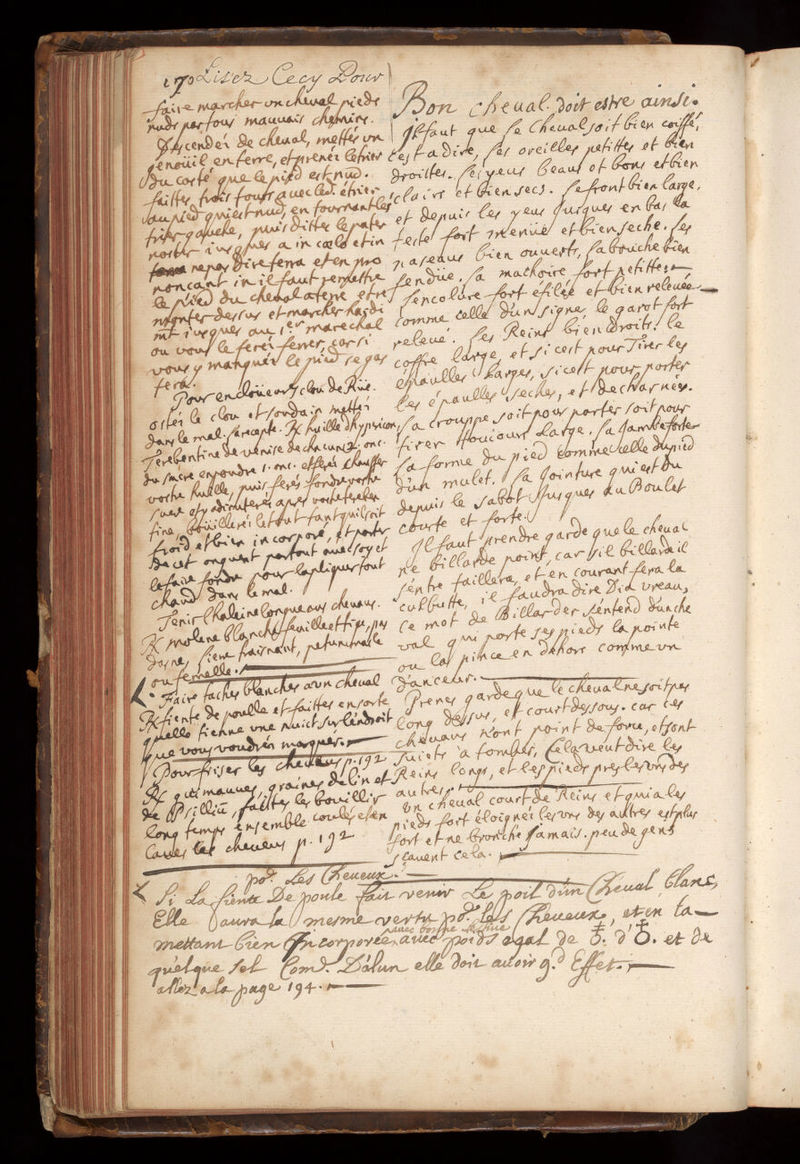 170 Lisez Cecy Pour
faire marcher un cheval pieds
nuds par tous mauuais chemins.
Descendei de cheual, mettés un
genoüil en terre, et prenéi l'étrier
du costé que le pied est nud.
faittes trois tours auec led. étrier
au pied qui est nud, en tournant l'é
trier gauche, puis dittes le pater
noster iusques a in cœlo et in
terra ne pas dire terra et en pro
noncant in il faut remettre
le pied du cheual a terre et re
monter dessus et marcher hardi
mt iusques au 1.er marechal
ou vous le feréi ferrer, car si
vous y manquéi le pied se gas
tera.
Pour encloüeure clou de Rüe.
ostéi le clou et soudain mettéi
dans le mal. sa recepte. ℞ huille d'hypericon,
Terebentine de venise de chacun 2. onc.
du sucre en poudre 1. onc. et feréi chauffer
vostre huille, puis feréi fondre vostre
sucre et y adiouteréi apres vostre tereben
tine, boüilleréi le tout tant quil soit
froid et bien incorporé, et porter
de cet onguent partout auec soy et
le faire fondre pour l'apliquer tout
chaud dans le mal.
Tenir l'halaine longue aux cheuaux.
℞ molene blanche feuille et tige, pas
dasne, siene traisnant, petun masle
ou femelle.
Faire taches blanches a un cheual
℞ fiente de poulle et faittes en sorte
quelle tienne une nuict sur l'endroit
que vous voudréi marquer.
Pour friser les cheueux p. 192
℞ guimauues, graines de lin et
de Psilliũ, faittes les bouillir
long temps ensemble coulés et en
laués les cheueux p. 192
Bon cheual doit estre ainsi.
Il faut que le Cheual soit bien coiffé,
c'est a dire, ses oreilles petittes et bien
droittes. ses yeux beaux et bons et bien
clairs et bien secs. le front bien large,
et depuis les yeux jusques en bas la
teste fort menüe et bien seche. ses
naseaux bien ouuerts, sa bouche bien
fendüe, sa machoire fort petitte.
l'encolure fort éfilée et bien releuée
comme celle d'un signe, le garot fort
releué. Ses Reins bien droits. le
coffre large, et si c'est pour Tirer les
épaulles larges, si c'est pour porter
les épaulles seches, et décharnées.
sa crouppe soit pour porter soit pour
tirer toujours large. sa jambe forte
la forme du pied comme celle du pied
d'un mulet. sa jointure qui est du
depuis le sabot jusques au Boulet
courte et forte.
Il faut prendre garde que le cheual
ne billarde point, car s'il billarde il
s'entre faillera, et en courant fera la
culbutte, il faudra dire Dia vreau,
Ce mot de Billarder s'entend d'un che
val qui porte ses pieds la pointe
ou la pince en dehors comme un
danceur.
Prenes garde que le cheual ne soit pas
long dessus, et court dessous. car ces
cheuaux n'ont point de force, et sont
suiets a tomber, Cela veut dire les
Reins longs, et les pieds pres les uns des
autres.
Un cheual court de Reins et qui a les
pieds fort éloignéi les uns des autres est plus
fort et ne bronche jamais. peu de gens
sçauent cela.
po.r Les Cheueux.
Si La fiente De poule fait venir Le poil d'un Cheual blanc,
Elle aura la mesme vertu po.r les Cheueux, et en la
mettant bien Incorporée, auec poids egal de ♁. d'♁. et de
quelque sel Com.e D'alun elle doit auoir g.d Effet.
allez a la page 194.